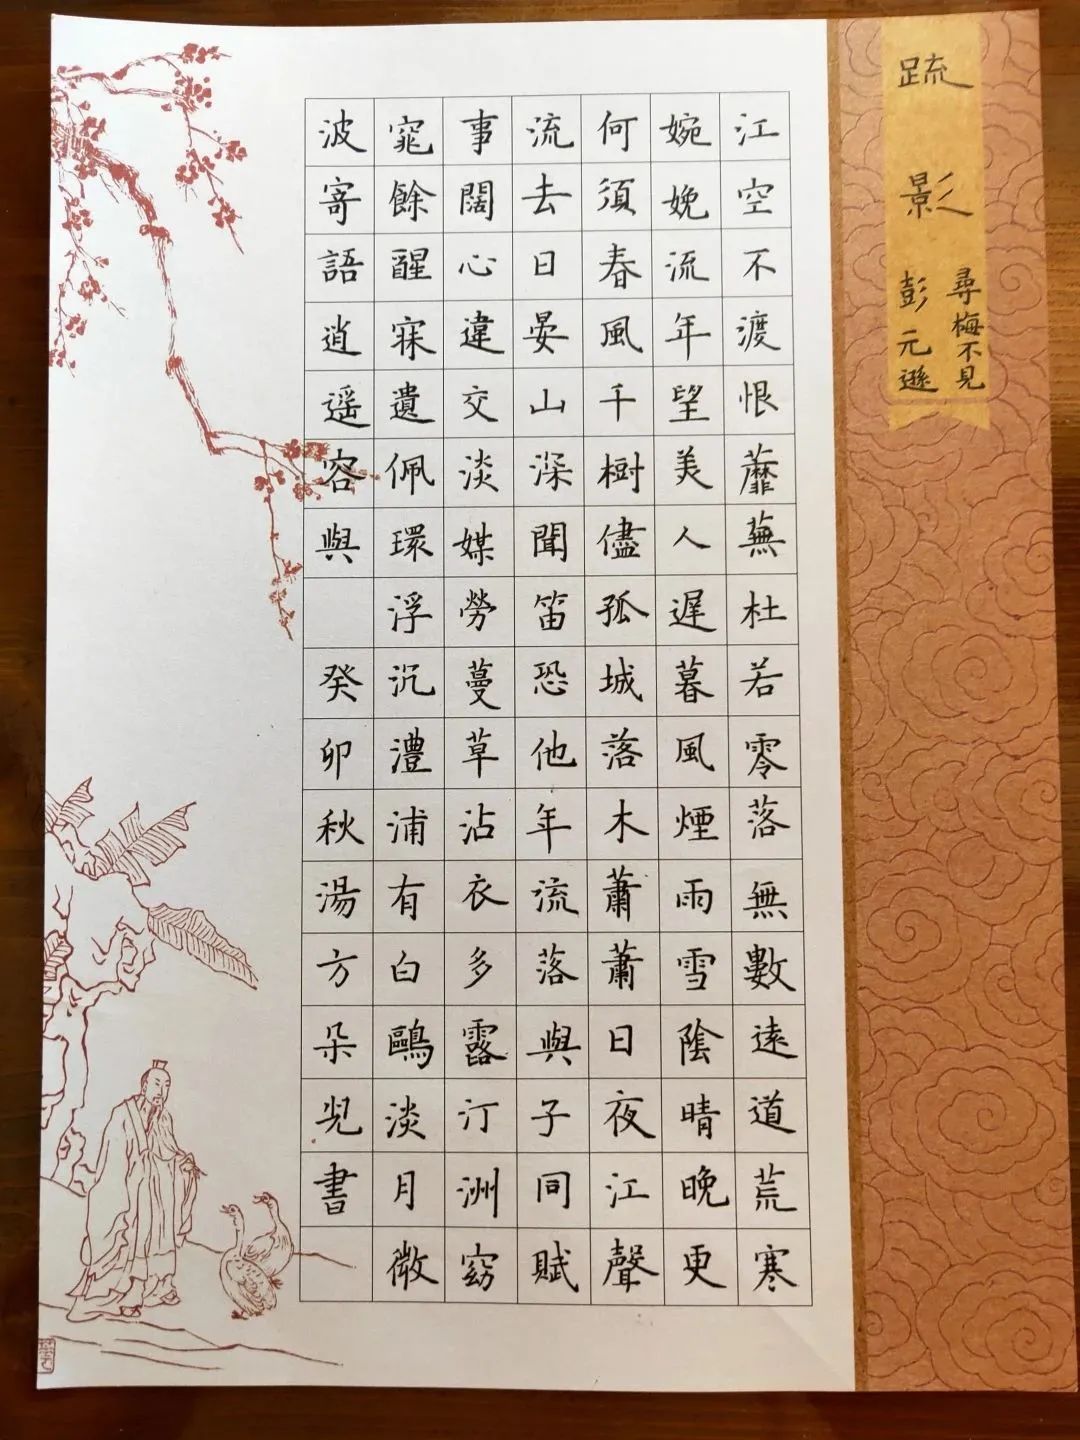 疏影
尋梅不見
彭元遜
江空不渡恨蘼蕪杜若零落無數遠道荒寒
婉娩流年望美人遲暮風煙雨雪陰晴晚更
何須春風千樹儘孤城落木蕭蕭日夜江聲
流去日晏山深聞笛恐他年流落與子同賦
事闊心違交淡媒勞蔓草沾衣多露汀洲窈
窕餘醒寐遺佩環浮沉澧浦有白鷗淡月微
波寄語逍遥容與 癸卯秋湯方朵兒書